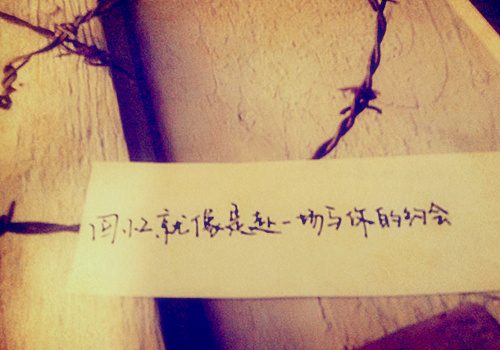 回忆就像是赴一场与你的约会